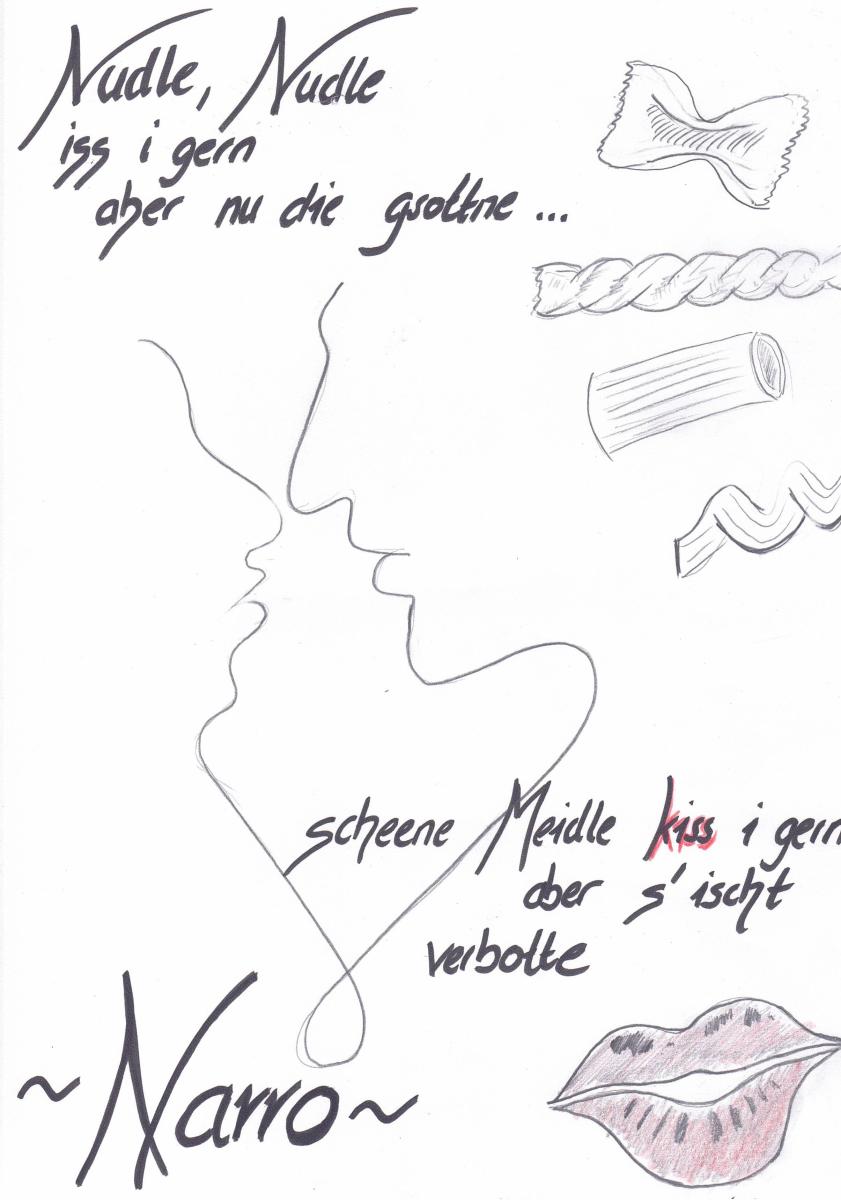 Nudle, Nudle
iss i gern
aber nu die gsottne ...
scheene Meidle kiss i gern
aber s' ischt
verbotte
~ Narro ~